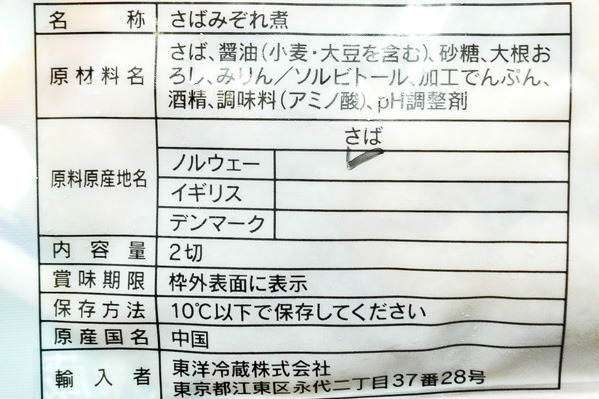 名称 さばみぞれ煮
原材料名 さば、醤油(小麦・大豆を含む)、砂糖、大根お
ろし、みりん／ソルビトール、加工でんぷん、
酒精、調味料(アミノ酸)、pH調整剤
原料原産地名 さば
ノルウェー ✓
イギリス
デンマーク
内容量 2切
賞味期限 枠外表面に表示
保存方法 10℃以下で保存してください
原産国名 中国
輸入者 東洋冷蔵株式会社
東京都江東区永代二丁目37番28号